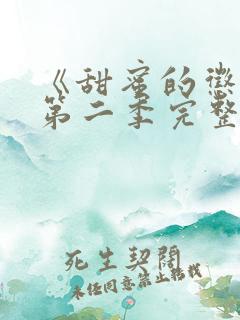 《甜蜜的惩
第二季完整
死生契阔
未经同意禁止转载